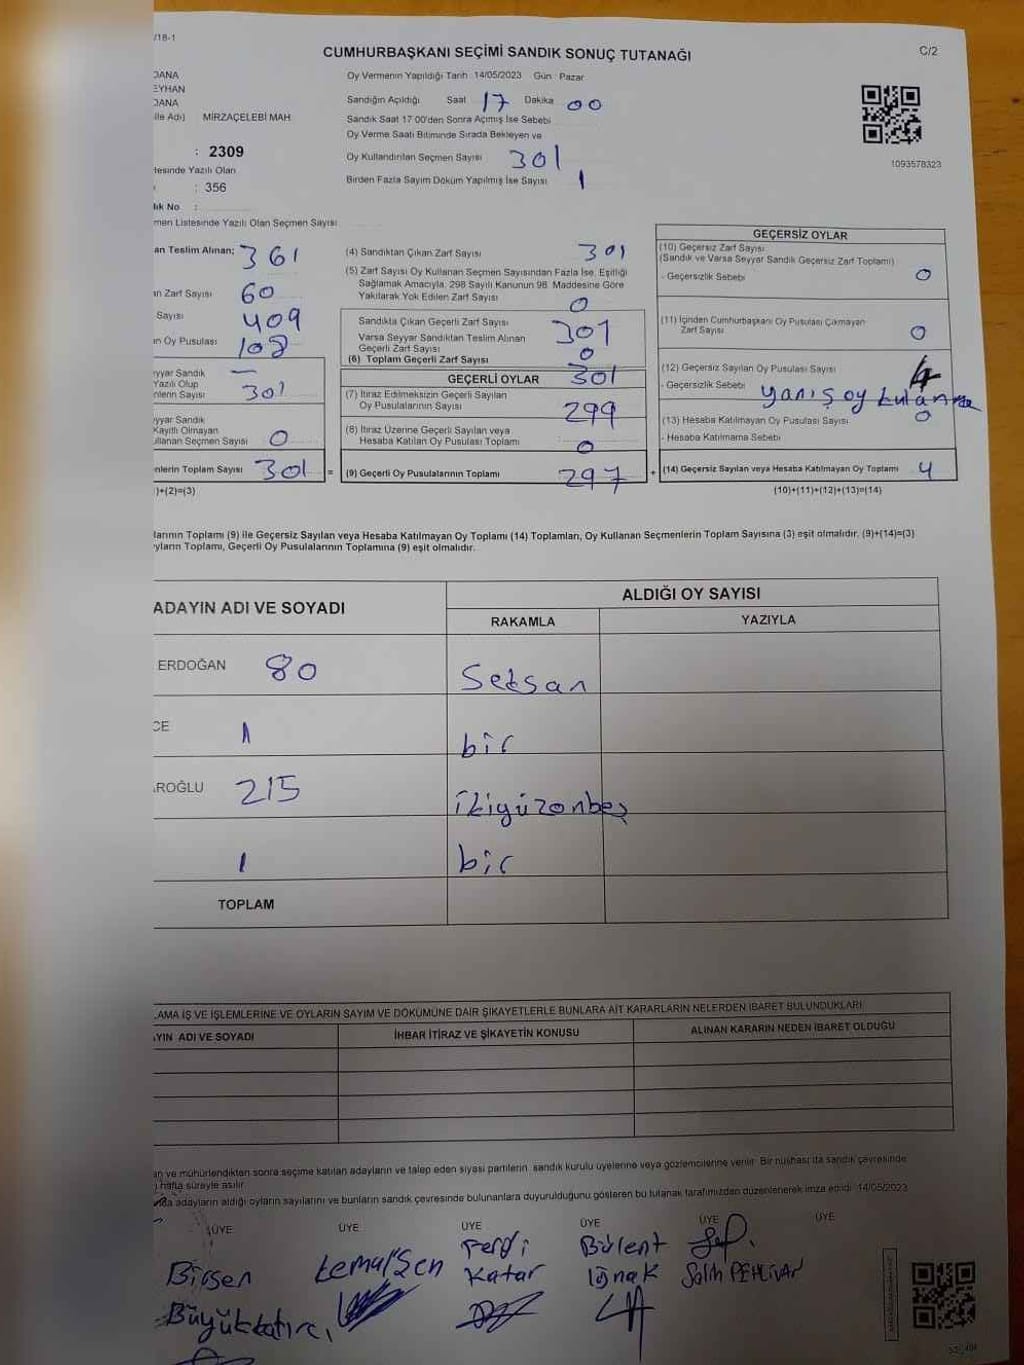 /18-1
CUMHURBAŞKANI SEÇİMİ SANDIK SONUÇ TUTANAĞI
C/2
DANA
EYHAN
DANA
lle Adı) MİRZAÇELEBİ MAH
: 2309
tesinde Yazılı Olan
: 356
lık No :
men Listesinde Yazılı Olan Seçmen Sayısı
Oy Vermenin Yapıldığı Tarih 14/05/2023 Gün : Pazar
Sandığın Açıldığı Saat 17 Dakika 00
Sandık Saat 17 00'den Sonra Açımış İse Sebebi
Oy Verme Saati Bitiminde Sırada Bekleyen ve
Oy Kullandırılan Seçmen Sayısı 301
Birden Fazla Sayım Döküm Yapılmış İse Sayısı 1
1093578323
an Teslim Alınan; 361
ın Zarf Sayısı 60
Sayısı 409
ın Oy Pusulası 108
yyar Sandık —
Yazılı Olup
nlerin Sayısı 301
yyar Sandık
Kayıtlı Olmayan
ullanan Seçmen Sayısı 0
nlerin Toplam Sayısı 301 =
)+(2)=(3)
(4) Sandıktan Çıkan Zarf Sayısı 301
(5) Zarf Sayısı Oy Kullanan Seçmen Sayısından Fazla İse, Eşitliği
Sağlamak Amacıyla, 298 Sayılı Kanunun 98. Maddesine Göre
Yakılarak Yok Edilen Zarf Sayısı 0
Sandıkta Çıkan Geçerli Zarf Sayısı 301
Varsa Seyyar Sandıktan Teslim Alınan
Geçerli Zarf Sayısı 0
(6) Toplam Geçerli Zarf Sayısı 301
GEÇERLİ OYLAR
(7) İtiraz Edilmeksizin Geçerli Sayılan
Oy Pusulalarının Sayısı 299
(8) İtiraz Üzerine Geçerli Sayılan veya
Hesaba Katılan Oy Pusulası Toplamı 0
(9) Geçerli Oy Pusulalarının Toplamı 297 +
GEÇERSİZ OYLAR
(10) Geçersiz Zarf Sayısı
(Sandık ve Varsa Seyyar Sandık Geçersiz Zarf Toplamı)
- Geçersizlik Sebebi 0
(11) İçinden Cumhurbaşkanı Oy Pusulası Çıkmayan
Zarf Sayısı 0
(12) Geçersiz Sayılan Oy Pusulası Sayısı 4
- Geçersizlik Sebebi yanış oy
(13) Hesaba Katılmayan Oy Pusulası Sayısı 0
- Hesaba Katılmama Sebebi
(14) Geçersiz Sayılan veya Hesaba Katılmayan Oy Toplamı 4
(10)+(11)+(12)+(13)=(14)
larının Toplamı (9) ile Geçersiz Sayılan veya Hesaba Katılmayan Oy Toplamı (14) Toplamları, Oy Kullanan Seçmenlerin Toplam Sayısına (3) eşit olmalıdır. (9)+(14)=(3)
yların Toplamı, Geçerli Oy Pusulalarının Toplamına (9) eşit olmalıdır.
ADAYIN ADI VE SOYADI
ALDIĞI OY SAYISI
RAKAMLA YAZIYLA
ERDOĞAN 80 Seksan
CE 1 bir
AROĞLU 215 ikiyüzonbeş
1 bir
TOPLAM
LAMA İŞ VE İŞLEMLERİNE VE OYLARIN SAYIM VE DÖKÜMÜNE DAİR ŞİKAYETLERLE BUNLARA AİT KARARLARIN NELERDEN İBARET BULUNDUKLARI
AYIN ADI VE SOYADI İHBAR İTİRAZ VE ŞİKAYETİN KONUSU ALINAN KARARIN NEDEN İBARET OLDUĞU
an ve mühürlendikten sonra seçime katılan adayların ve talep eden siyasi partilerin, sandık kurulu üyelerine veya gözlemcilerine verilir. Bir nüshası da sandık çevresinde
hafta süreyle asılır.
adayların aldığı oyların sayılarını ve bunların sandık çevresinde bulunanlara duyurulduğunu gösteren bu tutanak tarafımızdan düzenlenerek imza edildi. 14/05/2023
ÜYE ÜYE ÜYE ÜYE ÜYE ÜYE
Birsen Kemal Şen Ferdi Katar Bülent Salih PEHLİVAN